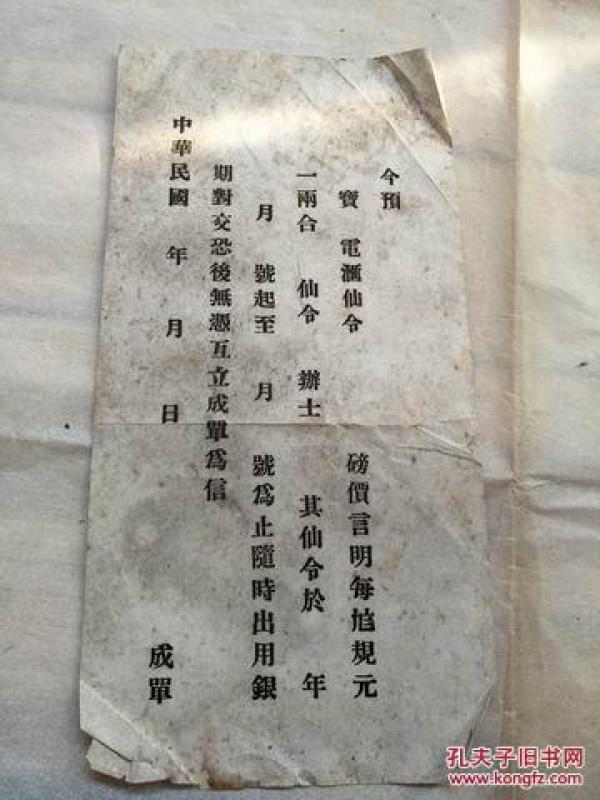 今預
寶 電滙仙令 磅價言明每㨿規元
一兩合 仙令 辦士 其仙令於 年
月 號起至 月 號爲止隨時出用銀
期對交恐後無憑互立成單爲信
中華民國 年 月 日 成單
孔夫子旧书网
www.kongfz.com